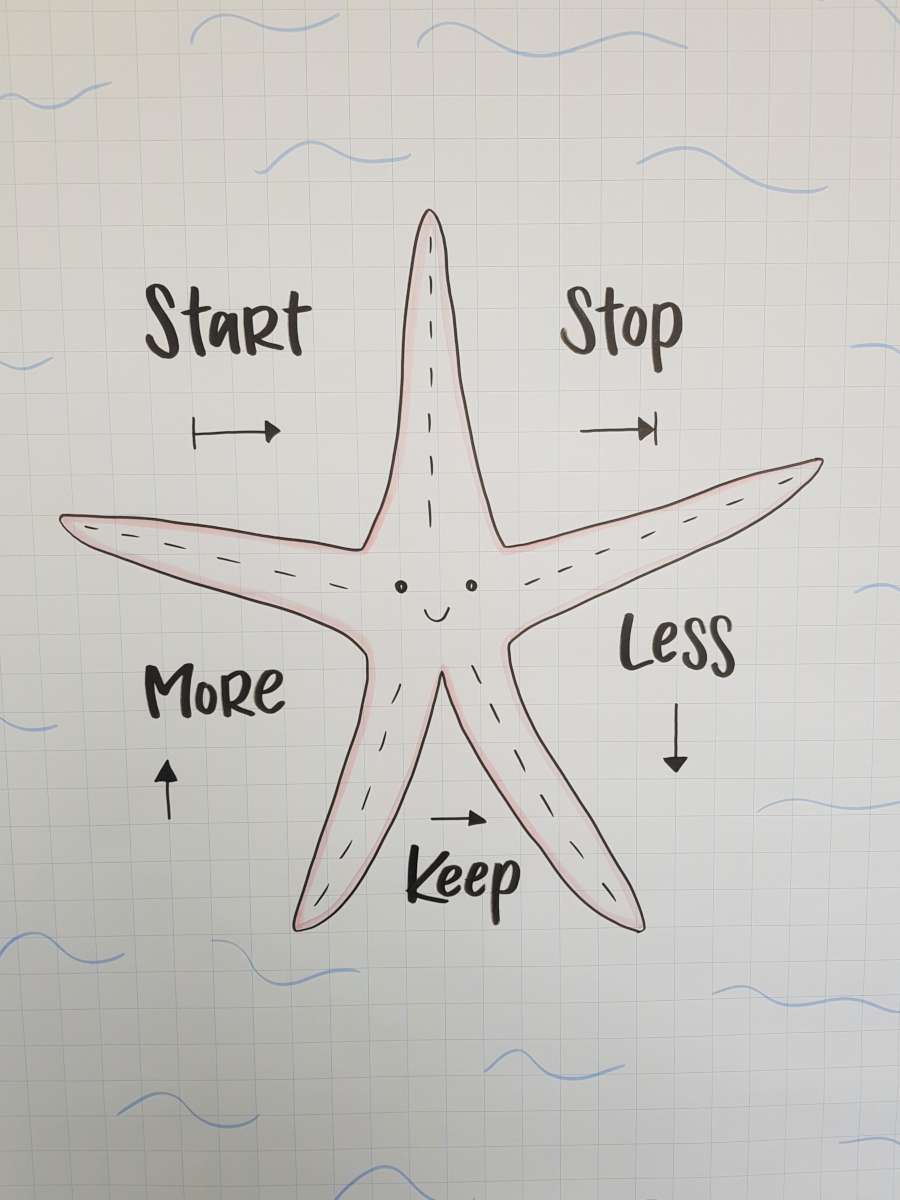 Start
Stop
More
Less
Keep